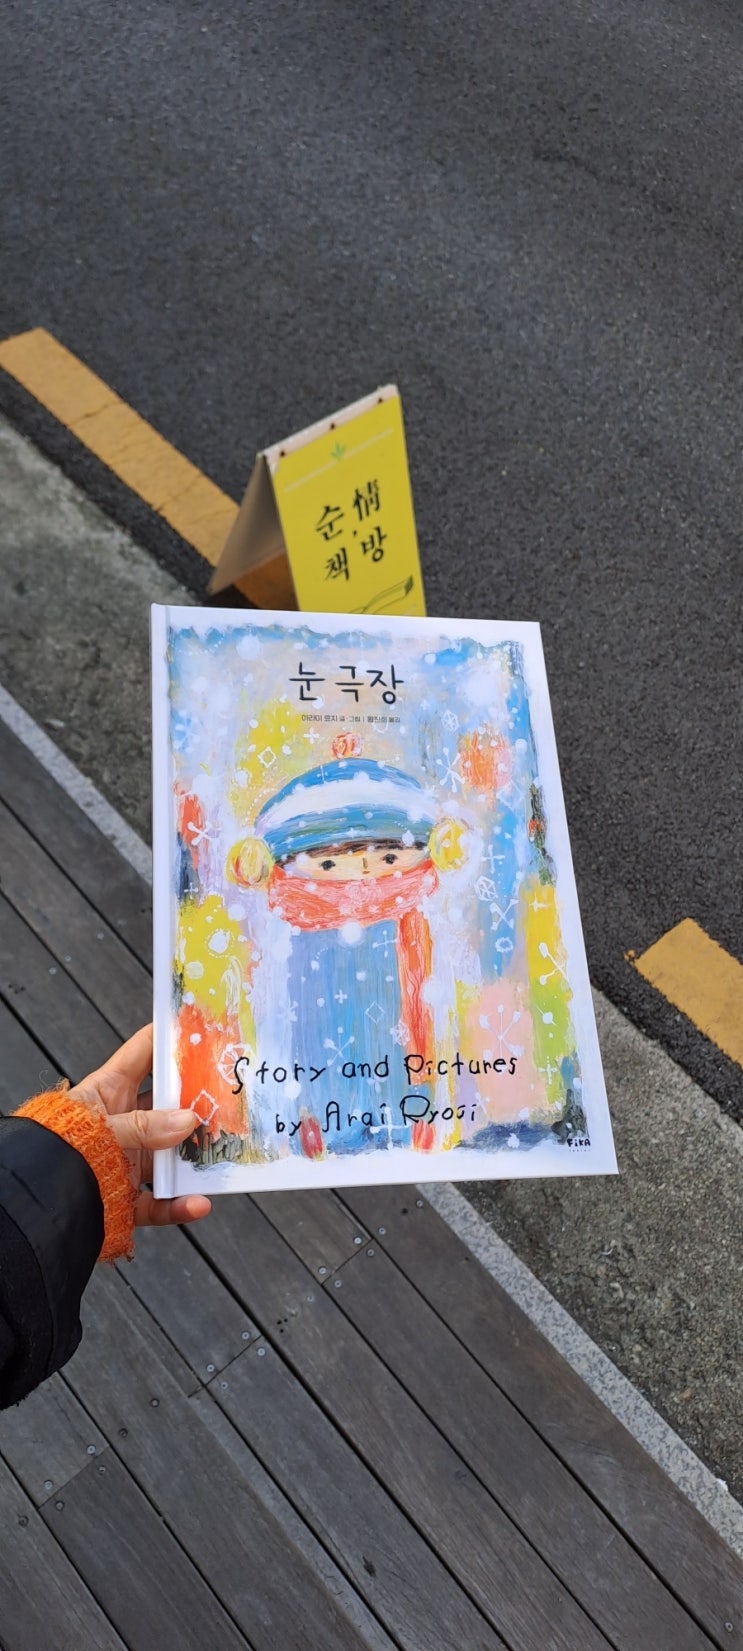 순情
책방
눈 극장
아라이 료지 글·그림 | 황진희 옮김
Story and Pictures
by Arai Ryoji
FIKA